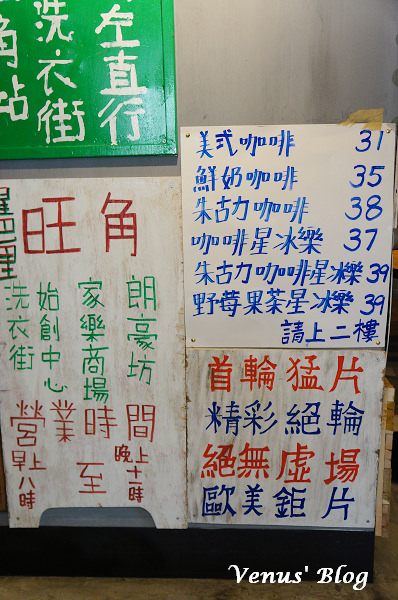 左直行
洗衣街
角站
旺角
朗豪坊
家樂商場
始創中心
洗衣街
營業時間
早上八時
至
晚上十一時
美式咖啡 31
鮮奶咖啡 35
朱古力咖啡 38
咖啡星冰樂 37
朱古力咖啡星冰樂 39
野莓果茶星冰樂 39
請上二樓
首輪猛片
精彩絕輪
絕無虛場
歐美鉅片
Venus' Blog